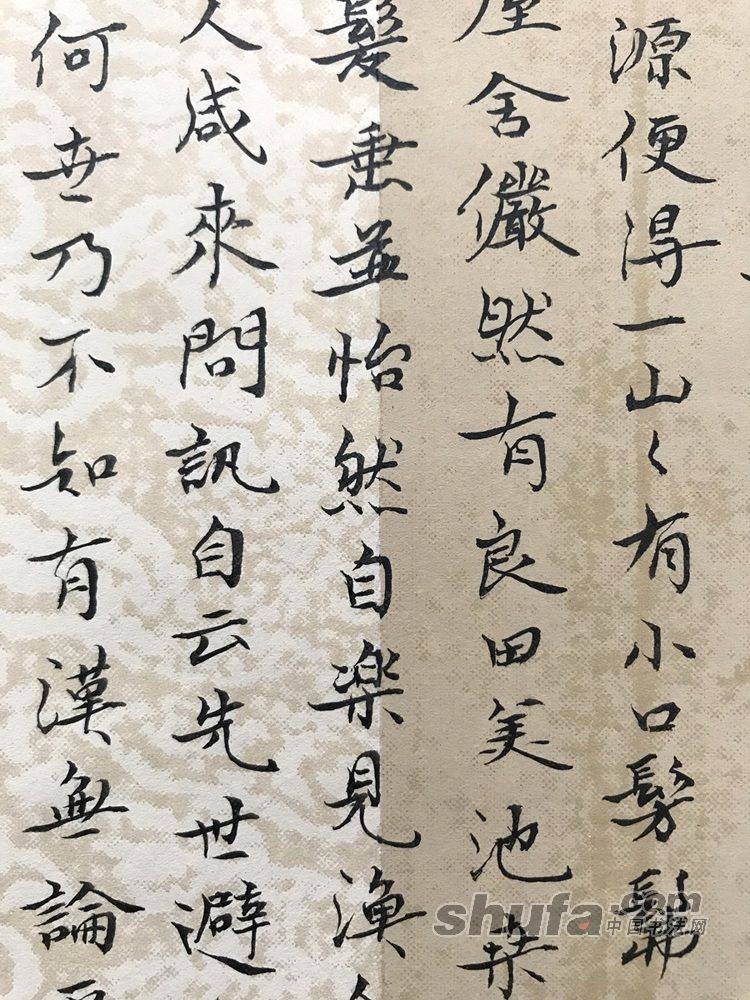 源便得一山々有小口髣髴
屋舍儼然有良田美池桑
髮垂並怡然自樂見漁人
人咸來問訊自云先世避
何世乃不知有漢無論
shufa.com
中国书法网